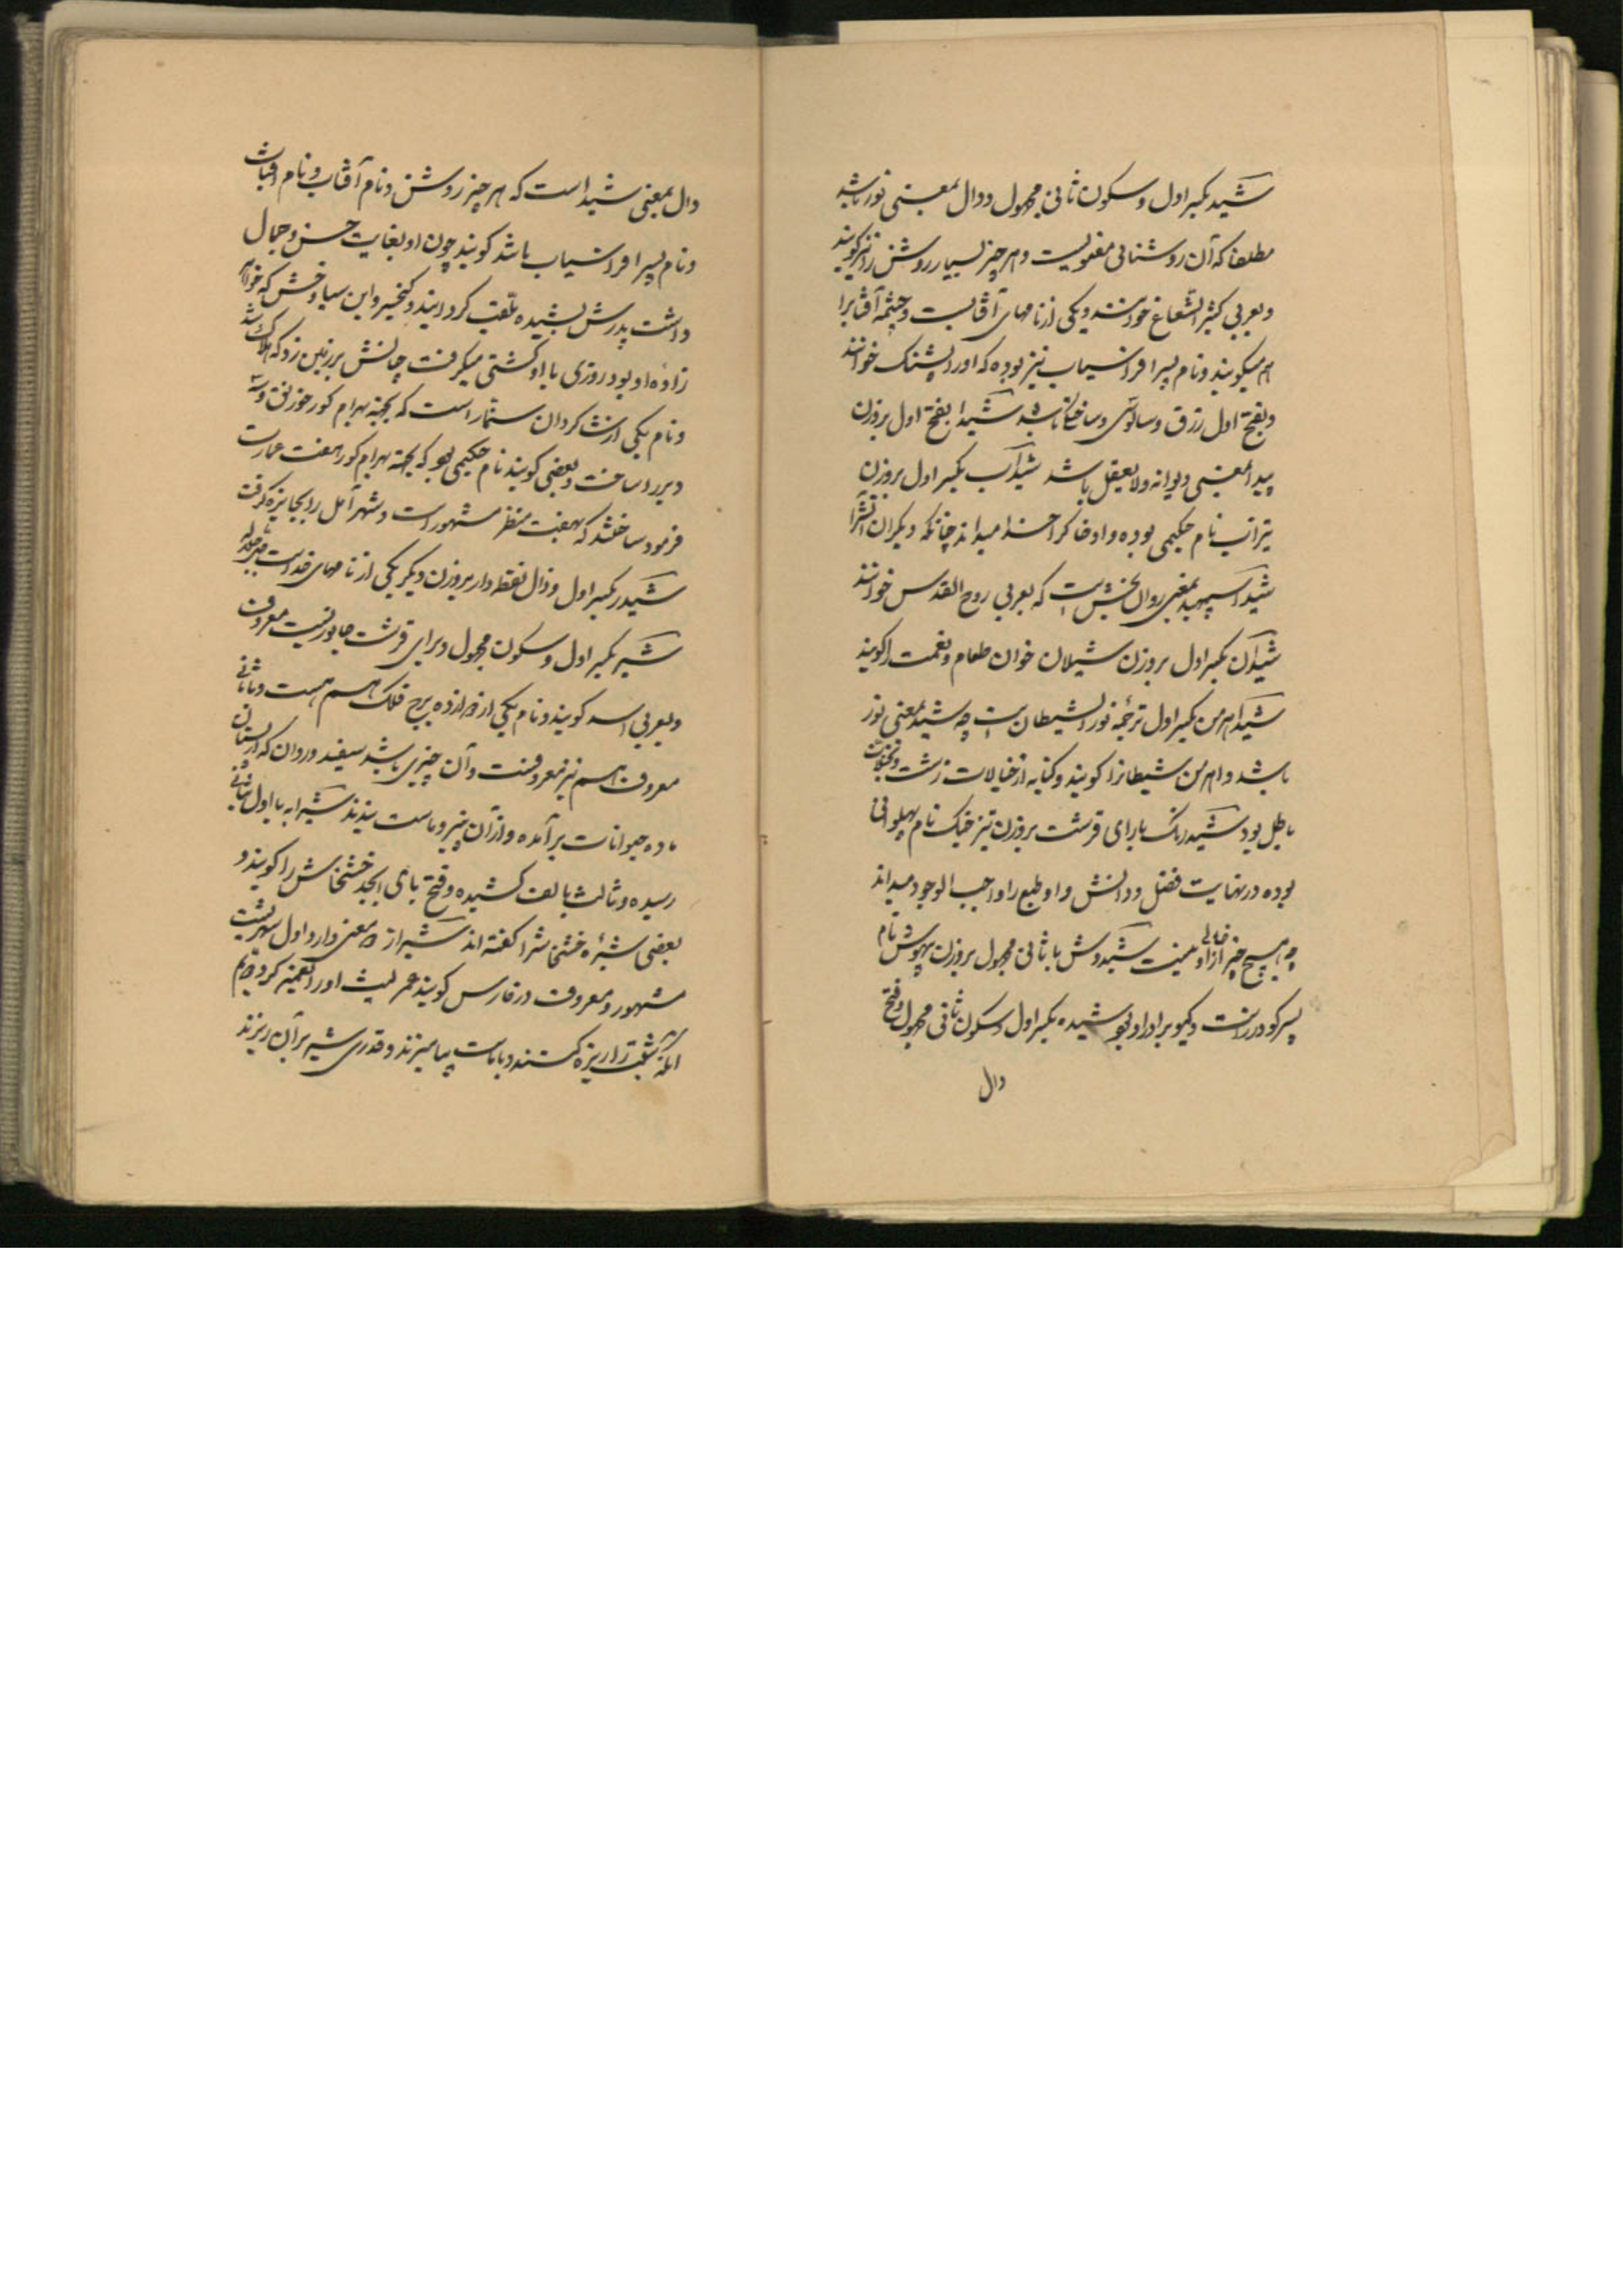 شید بکسر اول و سکون ثانی مجهول و دال بمعنی نور باشد
مطلقا که آن روشنائی معنویست و هر چیز بسیار روشن را نیز گویند
و بعربی کثیر الشعاع خوانند و یکی از نامهای آفتابست و چشمه آفتابرا
هم میگویند و نام پسر افراسیاب نیز بوده که او را پشنگ خوانند
و بفتح اول رزق و سالوسی و ساختگی باشد شیدا بفتح اول بر وزن
پیدا بمعنی دیوانه و لایعقل باشد شیداب بکسر اول بر وزن
تیزاب نام حکیمی بوده و او خاک را خدا میداند چنانکه دیگران آتش را
شید اسپهبد بمعنی روان بخش است که بعربی روح القدس خوانند
شیدان بکسر اول بر وزن شیلان خوان طعام و نعمت را گویند
شید اهرمن بکسر اول ترجمه نور الشیطان است چه شید بمعنی نور
باشد و اهرمن شیطانرا گویند و کنایه از خیالات زشت و تخیلات
باطل بود شیدرنگ با رای قرشت بر وزن تیز خنگ نام پهلوانی
بوده در نهایت فضل و دانش و او طبع را واجب الوجود میداند
چه هیچ چیز از او خالی نیست شیدوش با ثانی مجهول بر وزن بیهوش نام
پسر گودرز است و گیو برادر او بود شیده بکسر اول و سکون ثانی مجهول و فتح
دال
دال بمعنی شید است که هر چیز روشن و نام آفتاب و نام
و نام پسر افراسیاب باشد گویند چون او بغایت حسن و جمال
داشت پدرش بشیده ملقب گردانید و کیخسرو ابن سیاوخش که
زاده او بود روزی با او کشتی میگرفت چنانش بر زمین زد که هلاک شد
و نام یکی از شاگردان سنمار است که بجهة بهرام گور خورنق و سه
دیر را ساخت و بعضی گویند نام حکیمی بود که بجهة بهرام گور هفت عمارت
فرمود ساختند که بهفت منظر مشهور است و شهر آمل را بجایزه گرفت
شیدر بکسر اول و ذال نقطه دار بر وزن دیگر یکی از نامهای خداست جل جلاله
شیر بکسر اول و سکون مجهول و برای قرشت جانوریست معروف
و بعربی اسد گویند و نام یکی از دوازده برج فلک هم هست و با ثانی
معروف هم نیز معروفست و آن چیزی باشد سفید و روان که از پستان
ماده حیوانات بر آمده و از آن پنیر و ماست بندند شیرابه با اول بثانی
رسیده و ثالث بالف کشیده و فتح بای ابجد خشخاش را گویند و
بعضی شیره خشخاش را گفته اند شیراز دو معنی دارد اول شهریست
مشهور و معروف در فارس گویند عمر لیث او را تعمیر کرد دویم
آنکه شبت را ریزه کنند و با ماست بیامیزند و قدری شیر بر آن ریزند